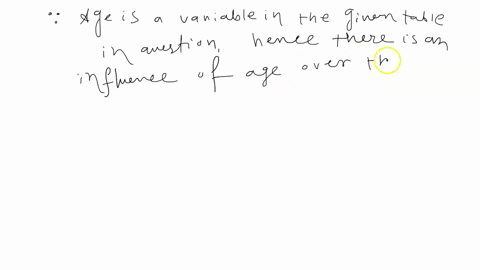 ∵ Age is a variable in the given table
in question, hence there is an
influence of age over th